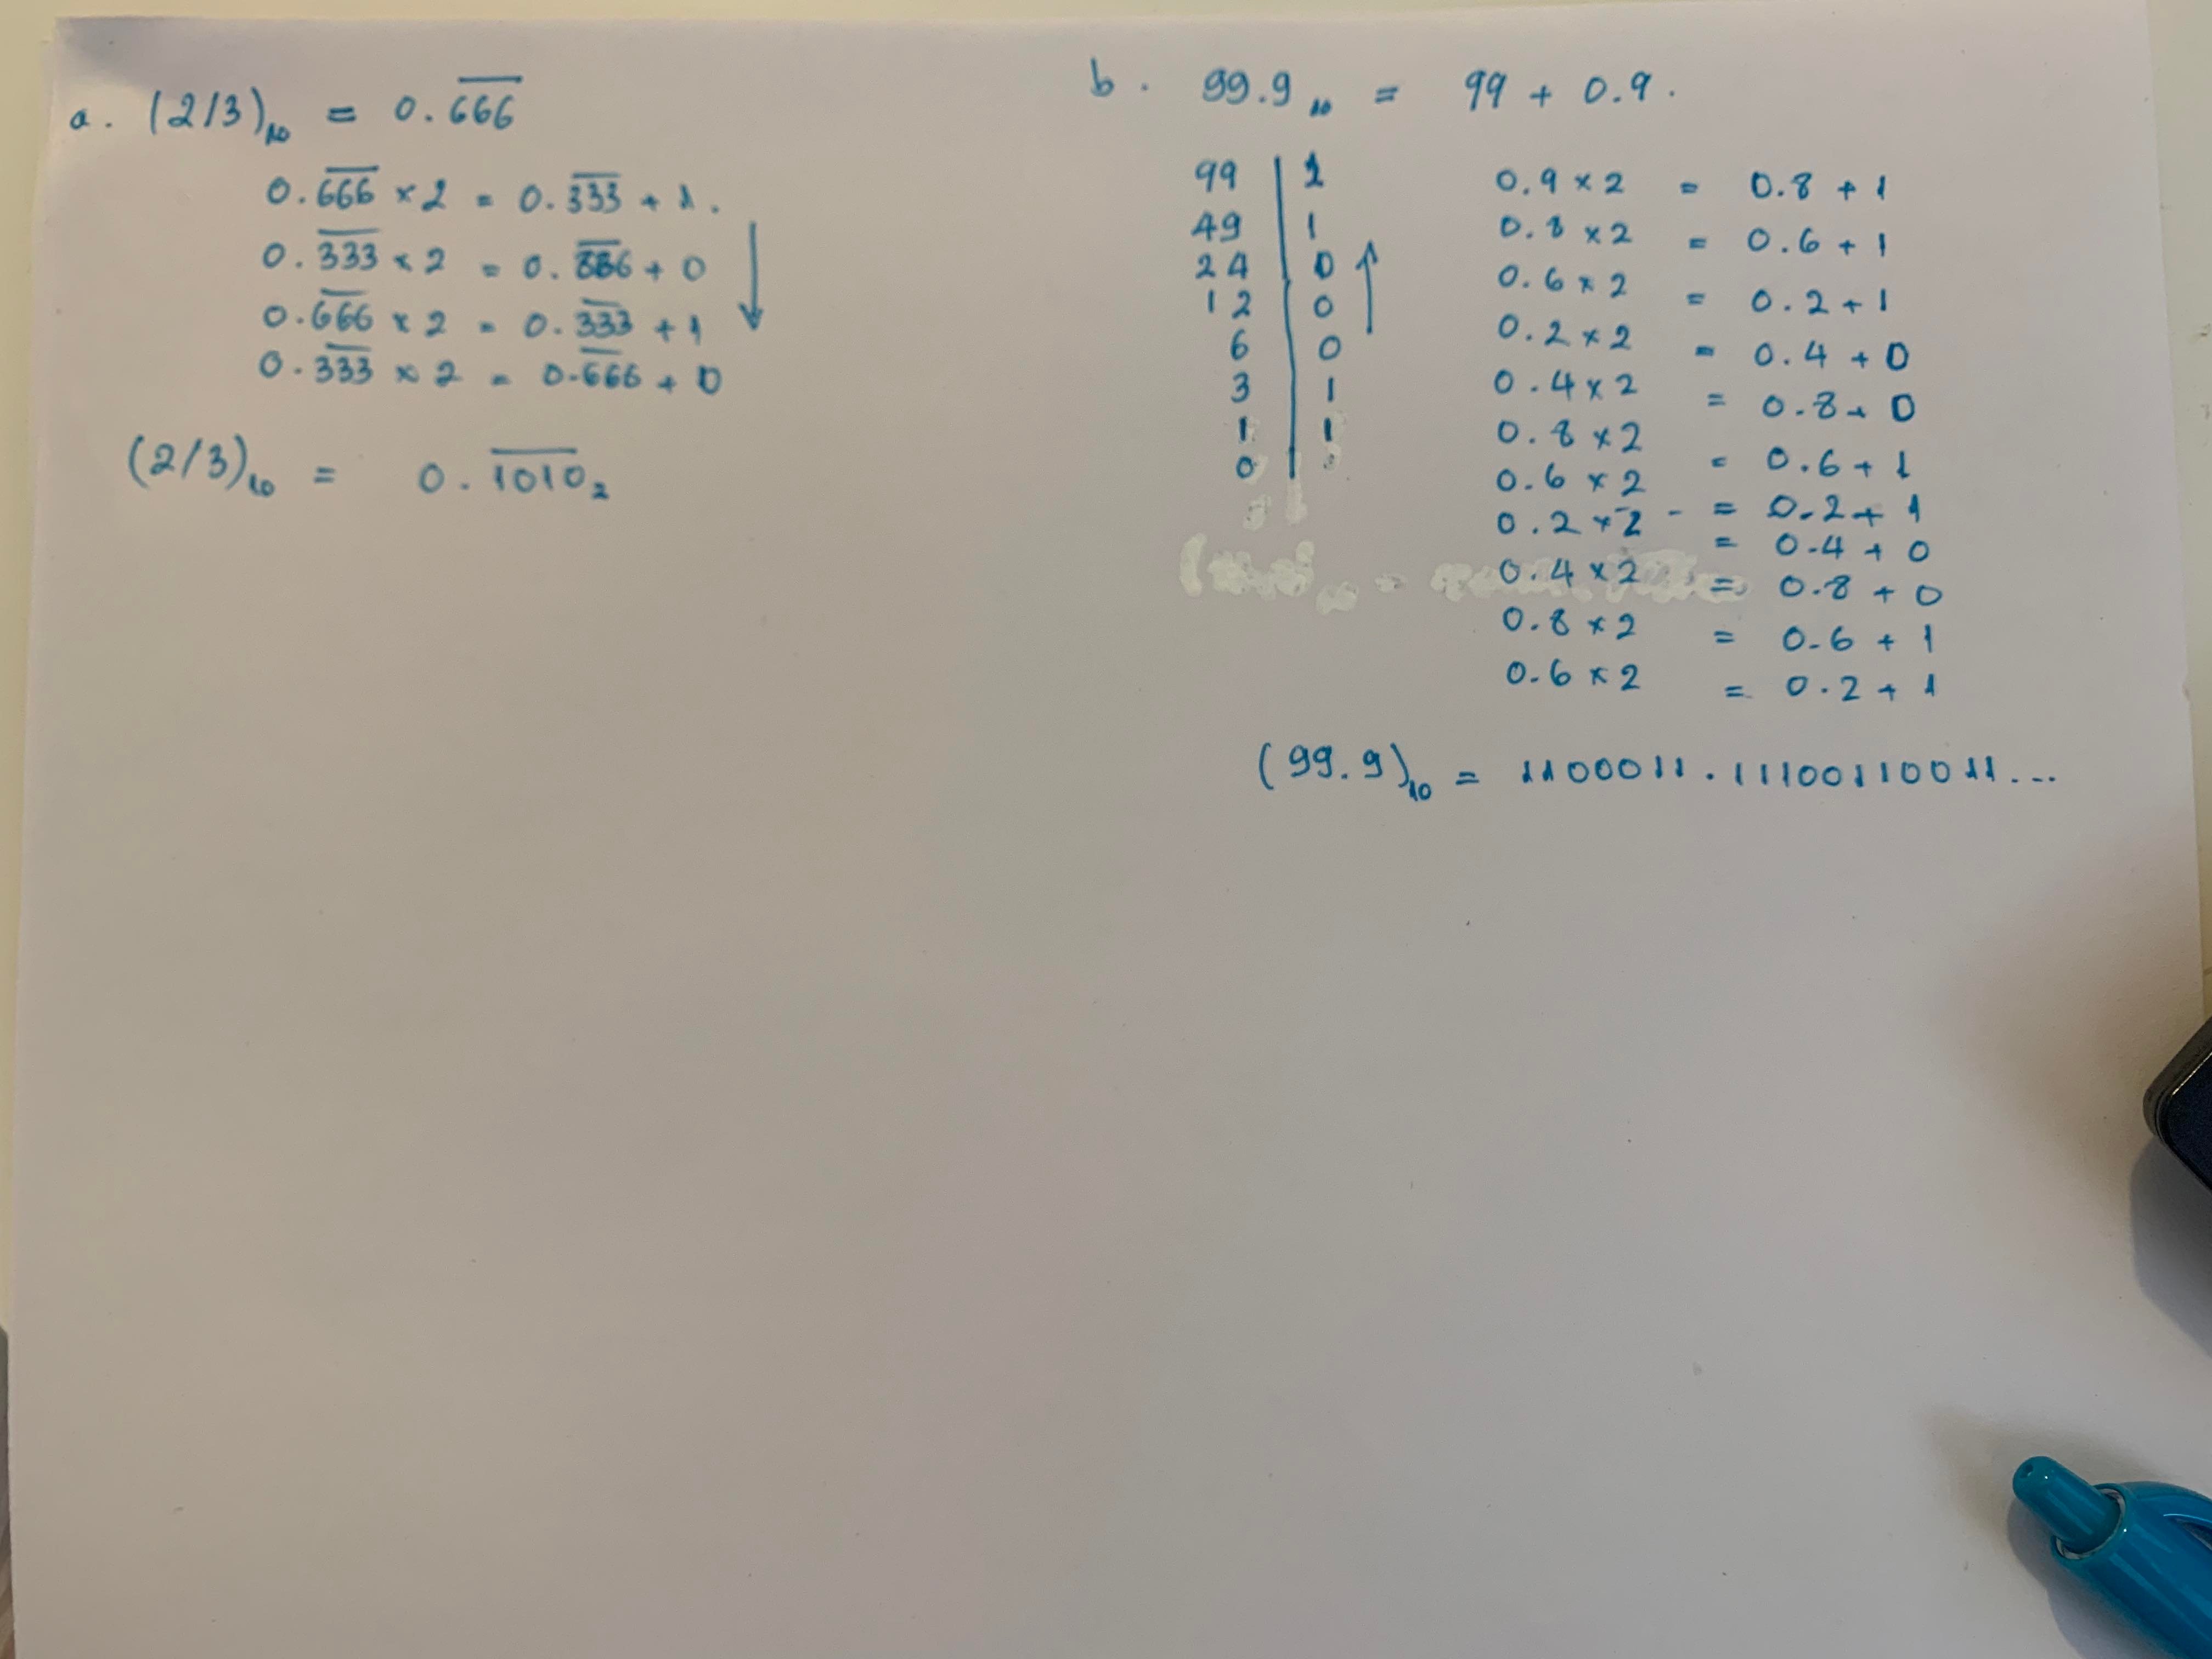 a. (2/3)₁₀ = 0.6̅6̅6̅
0.6̅6̅6̅ × 2 = 0.3̅3̅3̅ + 1.
0.3̅3̅3̅ × 2 = 0.6̅6̅6 + 0
0.6̅6̅6̅ × 2 = 0.3̅3̅3̅ + 1
0.3̅3̅3̅ × 2 = 0.6̅6̅6̅ + 0
(2/3)₁₀ = 0.1̅0̅1̅0̅₂
b. 99.9₁₀ = 99 + 0.9.
99 | 1
49 | 1
24 | 0
12 | 0
6 | 0
3 | 1
1 | 1
0 |
0.9 × 2 = 0.8 + 1
0.8 × 2 = 0.6 + 1
0.6 × 2 = 0.2 + 1
0.2 × 2 = 0.4 + 0
0.4 × 2 = 0.8 + 0
0.8 × 2 = 0.6 + 1
0.6 × 2 = 0.2 + 1
0.2 × 2 = 0.4 + 0
0.4 × 2 = 0.8 + 0
0.8 × 2 = 0.6 + 1
0.6 × 2 = 0.2 + 1
(99.9)₁₀ = 1100011.11100110011...